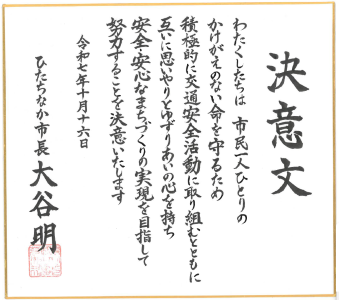 決意文
わたくしたちは 市民一人ひとりの
かけがえのない命を守るため
積極的に交通安全活動に取り組むとともに
互いに思いやりとゆずりあいの心を持ち
安全・安心なまちづくりの実現を目指して
努力することを決意いたします
令和七年十月十六日
ひたちなか市長 大谷明